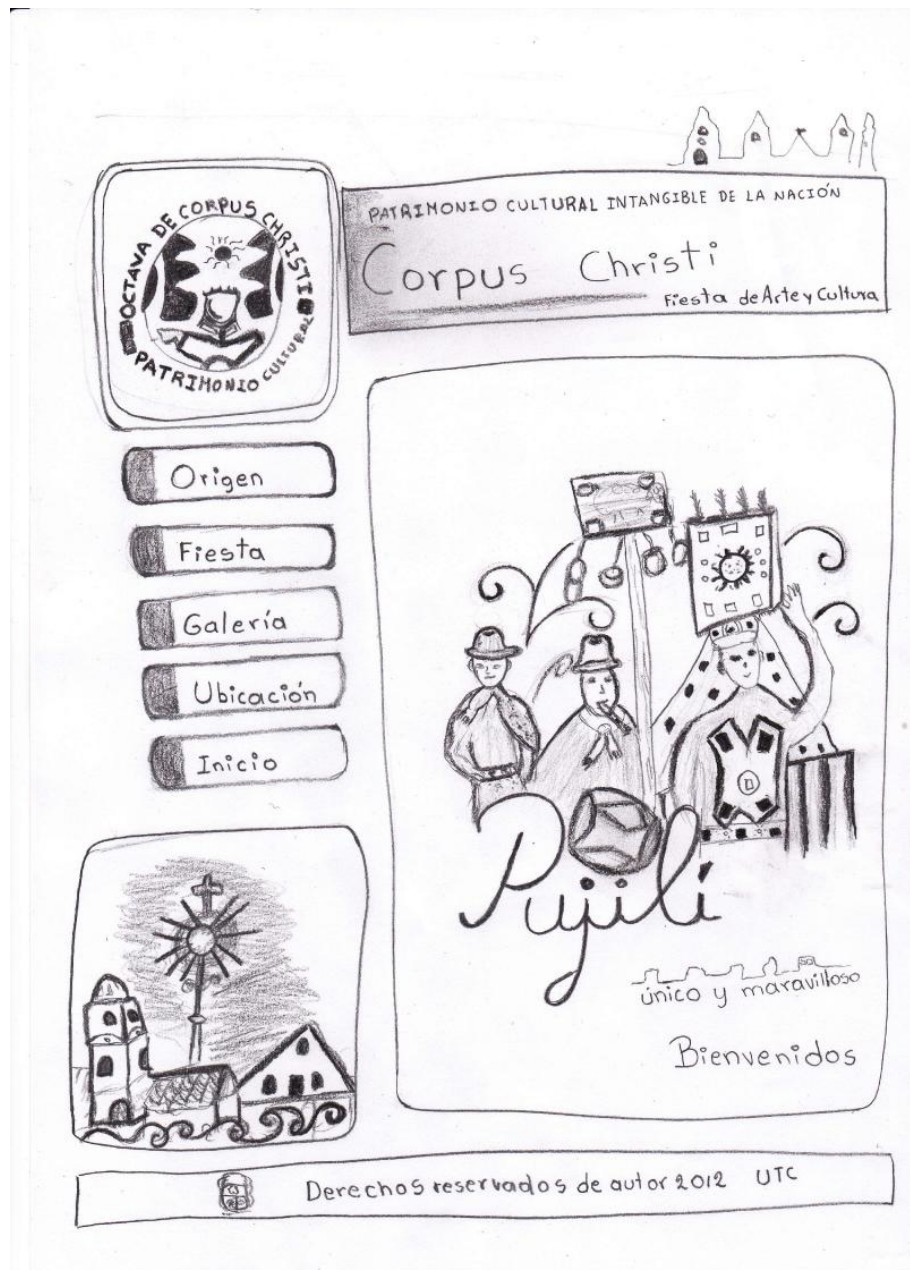 OCTAVA DE CORPUS CHRISTI
PATRIMONIO CULTURAL
PATRIMONIO CULTURAL INTANGIBLE DE LA NACIÓN
Corpus Christi
Fiesta de Arte y Cultura
Origen
Fiesta
Galería
Ubicación
Inicio
Pujilí
único y maravilloso
Bienvenidos
Derechos reservados de autor 2012 UTC